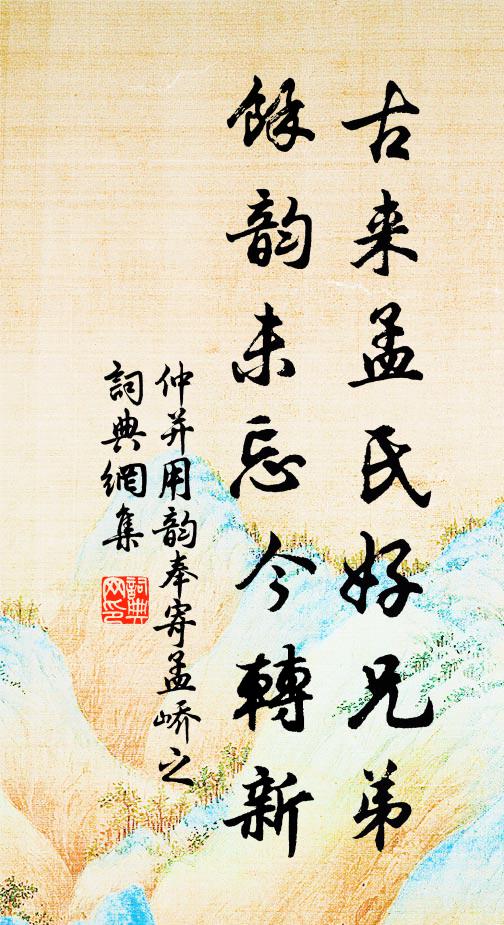 古来孟氏好兄弟
餘韵未忘今轉新
仲并用韵奉寄孟嶠之
詞典網集
詞典网印